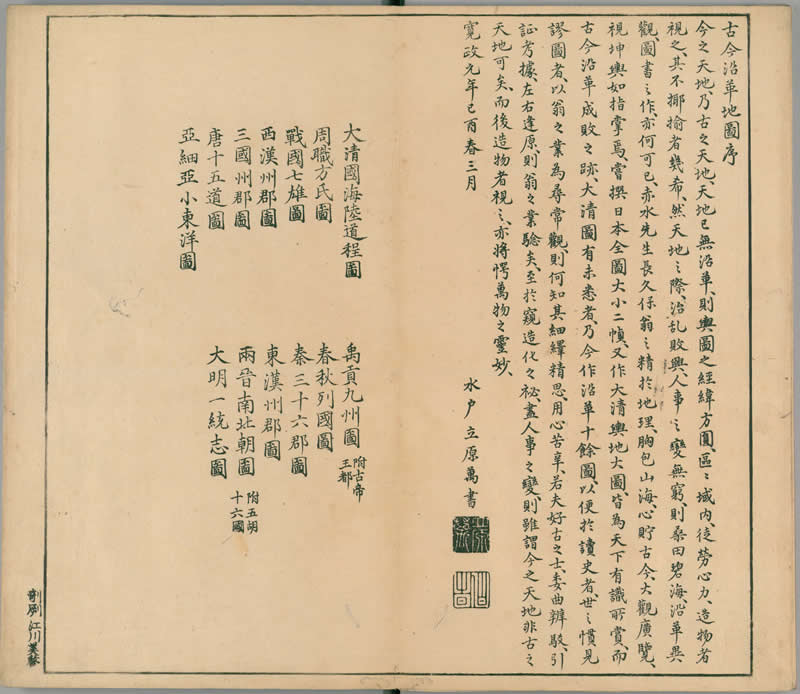 古今沿革地圖序
今之天地、乃古之天地、天地已無沿革、則輿圖之經緯方圓、區〻域內、徒勞心力、造物者
視之、其不揶揄者幾希、然天地之際、治乱敗興、人事之變無窮、則桑田碧海、沿革異
觀、圖書之作、亦何可已、赤水先生長久保翁之精於地理、胸包山海、心貯古今、大觀廣覽、
視坤輿如指掌焉、嘗撰日本全圖大小二幀、又作大清輿地大圖、皆為天下有識所賞、而
古今沿革成敗之跡、大清圖有未悉者、乃今作沿革十餘圖、以便於讀史者、世之慣見
謬圖者、以翁之業為尋常觀、則何知其細繹精思、用心苦辛、若夫好古之士、委曲辨駁、引
証考據、左右逢原、則翁之業驗矣、至於窺造化之祕、盡人事之變、則雖謂今之天地非古之
天地可矣、而後造物者視之、亦將愕萬物之靈妙、
寛政元年己酉春三月
水户立原萬書
大清國海陸道程圖
禹貢九州圖 附古帝王都
周職方氏圖
春秋列國圖
戰國七雄圖
秦三十六郡圖
西漢州郡圖
東漢州郡圖
三國州郡圖
兩晉南北朝圖 附五胡十六國
唐十五道圖
大明一統志圖
亞細亞小東洋圖
剞劂 江川